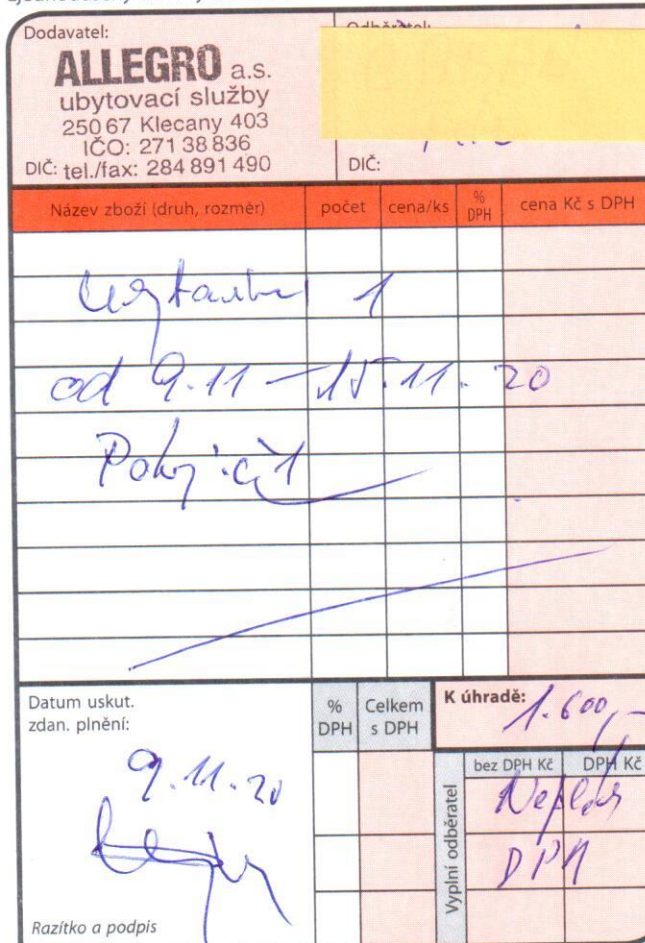 Dodavatel:
Odběratel:
ALLEGRO a.s.
ubytovací služby
250 67 Klecany 403
IČO: 271 38 836
DIČ: tel./fax: 284 891 490
DIČ:
Název zboží (druh, rozměr) počet cena/ks % DPH cena Kč s DPH
1
od 9.11 - 15.11.20
Datum uskut.
zdan. plnění:
9.11.20
Razítko a podpis
% DPH
Celkem s DPH
K úhradě: 1.600,-
Vyplní odběratel
bez DPH Kč DPH Kč
DPH